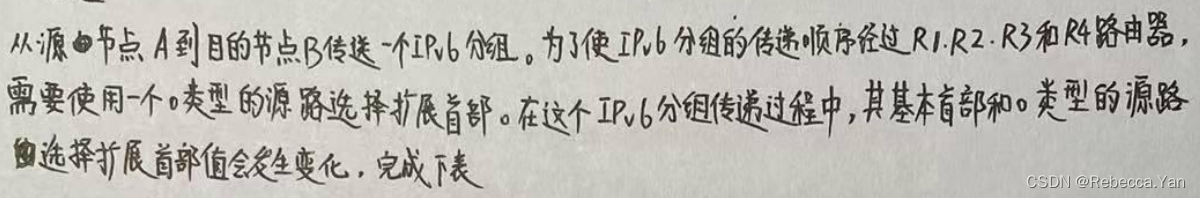 从源节点A到目的节点B传送一个IPv6分组。为了使IPv6分组的传递顺序经过R1.R2.R3和R4路由器,
需要使用一个0类型的源路选择扩展首部。在这个IPv6分组传递过程中,其基本首部和0类型的源路
选择扩展首部值会发生变化,完成下表
CSDN @Rebecca.Yan